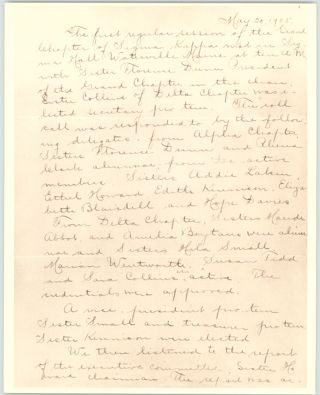 May 20, 1905.
The first regular session of the Grand
Chapter of Sigma Kappa was in Sig-
ma Hall Waterville Maine at ten A.M.
with Sister Florence Dunn President
of the Grand Chapter in the chair.
Sister Collins of Delta Chapter was e-
lected secretary pro tem. The roll
call was responded to by the follow-
ing delegates, from Alpha Chapter,
Sisters Florence Dunn and
Clark alumnae, from the active
members Sisters Addie Lakin,
Ethel Howard Edith Kennison, Eliza-
beth Blaisdell and Hope Davies
From Delta Chapter, Sisters Maude
Abbot, and Amelia were alum-
nae and Sisters Hila Small
Marian Wentworth, Susan Tedd
and Sara Collins, active The
credentials were approved.
A vice president pro-tem
Sister Small and treasurer pro tem
Sister Kennison were elected
We then listened to the report
of the executive committee, Sister Ho-
ward chairman. The report was ac-